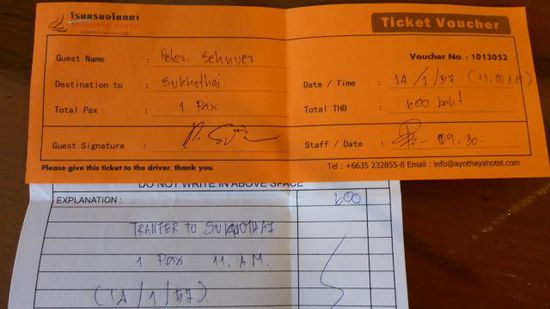 โรงแรมอโยธยา
Ticket Voucher
Guest Name : Peter Schuver
Voucher No. : 1013052
Destination to : Sukhothai
Date / Time : 14/1/57 (11.00 A.M)
Total Pax : 1 Pax
Total THB : 600 baht
Guest Signature :
Staff / Date : 09.30
Please give this ticket to the driver, thank you.
Tel : +6635 232855-8 Email : info@ayothayahotel.com
DO NOT WRITE IN ABOVE SPACE
EXPLANATION : 600
TRANFER TO SUKHOTHAI
1 Pax 11. A.M.
(14/1/57)